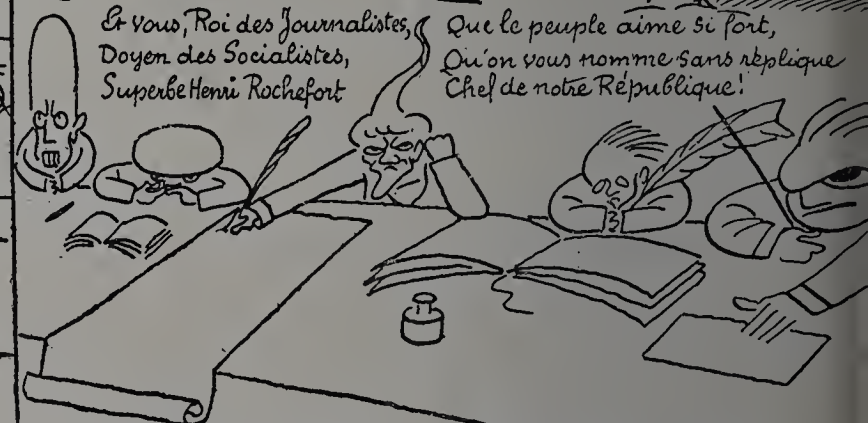 Et vous, Roi des Journalistes,
Doyen des Socialistes,
Superbe Henri Rochefort
Que le peuple aime si fort,
Qu'on vous nomme sans réplique
Chef de notre République!